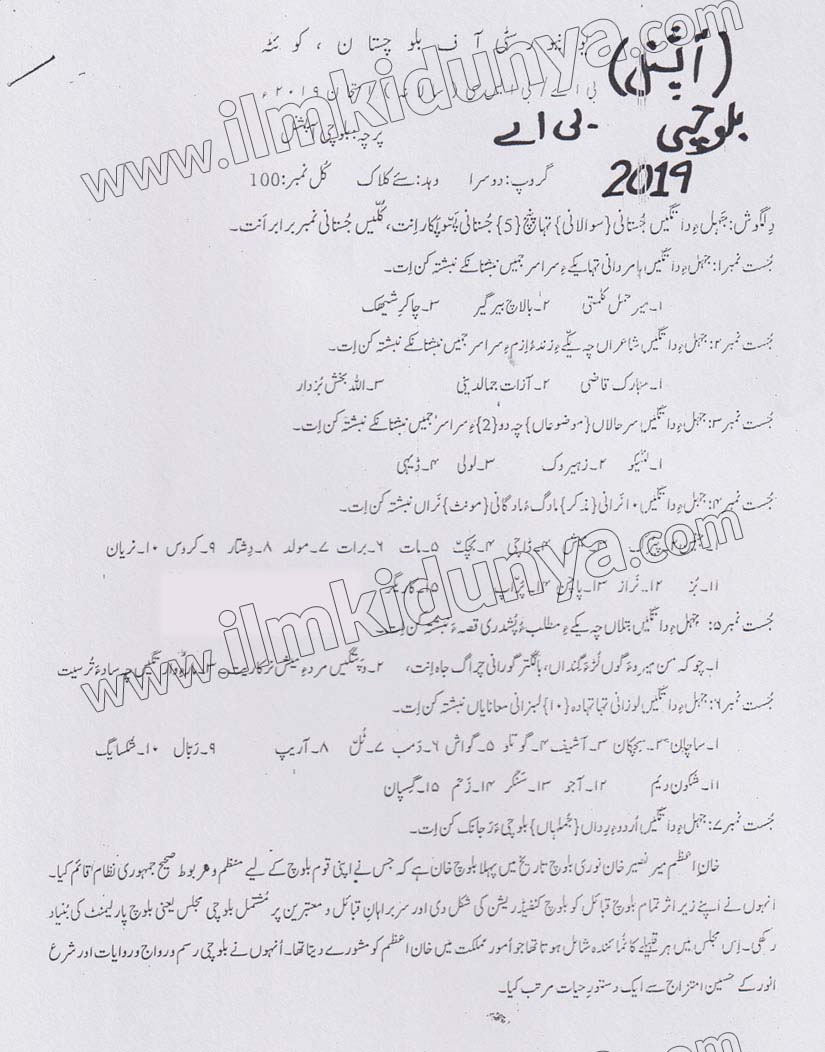 یونیورسٹی آف بلوچستان، کوئٹہ
(آپشنل)
بی اے/ بی ایس سی (سالانہ) امتحان ۲۰۱۹ء
بلوچی - بی اے
پرچہ: بلوچی آپشنل
2019
گروپ: دوسرا وہد: سئے کلاک کل نمبر: 100
دلگوش: جہل ءِ داتگیں جُستانی {سوالانی} تہا پنچ {5} جُستانی پَسّو پکار اِنت، کُلّیں جُستانی نمبر برابر اَنت۔
جُست نمبر۱: جہل ءِ داتگیں نامردانی تہا یکے ءِ سراسر جمیں نبشتانکے نبشتہ کن اِت۔
۱۔ میر حمل کلمتی ۲۔ بالاچ بیرگیر ۳۔ چاکر شیہک
جُست نمبر۲: جہل ءِ داتگیں شاعراں چہ یکّے ءِ زند ءُ ازم ءِ سراسر جمیں نبشتانکے نبشتہ کن اِت۔
۱۔ مبارک قاضی ۲۔ آزات جمالدینی ۳۔ اللہ بخش بُزدار
جُست نمبر۳: جہل ءِ داتگیں سرحالاں {موضوعاں} چہ دو {2} ءِ سراسر جمیں نبشتانکے نبشتہ کن اِت۔
۱۔ لئیکو ۲۔ زہیروک ۳۔ لولی ۴۔ ڈیہی
جُست نمبر۴: جہل ءِ داتگیں ۱۰ نرانی {مذکر} مادگ ءُ مادگانی {مونث} نَراں نبشتہ کن اِت۔
۴۔ بچکّ ۵۔ مات ۶۔ برات ۷۔ مولد ۸۔ دِشتار ۹۔ کروس ۱۰۔ نریان
۱۱۔ بُز ۱۲۔ نَراز ۱۳۔ ۱۴۔ ۱۵۔ کاریگر
جُست نمبر۵: جہل ءِ داتگیں بتلاں چہ یکے ءِ مطلب ءُ پُشدری قصہ ءَ نبشتہ کن اِت۔
۱۔ چو کہ من میروءَ گوں لُڑءَ گنداں، بانگلتر گورانی چراگ جاہ اِنت، ۲۔ وپتگیں مردءِ میش نَر کاریت۔ ۳۔ مار وارتگیں چہ سادءَ تُرسیت
جُست نمبر۶: جہل ءِ داتگیں لوزانی تہا تہادہ {۱۰} لبزانی معنایاں نبشتہ کن اِت۔
۱۔ ساچان ۲۔ بچکان ۳۔ آشیف ۴۔ گوتلو ۵۔ گواش ۶۔ دَمب ۷۔ ٹُل ۸۔ آریپ ۹۔ رَبتال ۱۰۔ شکسایگ
۱۱۔ شکون دیم ۱۲۔ آجو ۱۳۔ سَنگر ۱۴۔ زَحم ۱۵۔ گیسپان
جُست نمبر۷: جہل ءِ داتگیں اُردو ءِ رِداں {جُملہاں} بلوچی ءَ رَجانک کن اِت۔
خانِ اعظم میر نصیر خان نوری بلوچ تاریخ میں پہلا بلوچ خان ہے کہ جس نے اپنی قوم بلوچ کے لیے منظم و مربوط صحیح جمہوری نظام قائم کیا۔
انہوں نے اپنے زیر اثر تمام بلوچ قبائل کو بلوچ کنفیڈریشن کی شکل دی اور سربراہانِ قبائل و معتبرین پر مُشتمل بلوچی مجلس یعنی بلوچ پارلیمنٹ کی بُنیاد
رکھی۔ اِس مجلس میں ہر قبیلے کا نُمائندہ شامل ہوتا تھا جو اُمورِ مملکت میں خان اعظم کو مشورے دیتا تھا۔ اُنہوں نے بلوچی رسم و رواج و روایات اور شرع
انور کے حسین امتزاج سے ایک دستورِ حیات مرتب کیا۔
www.ilmkidunya.com
www.ilmkidunya.com
www.ilmkidunya.com